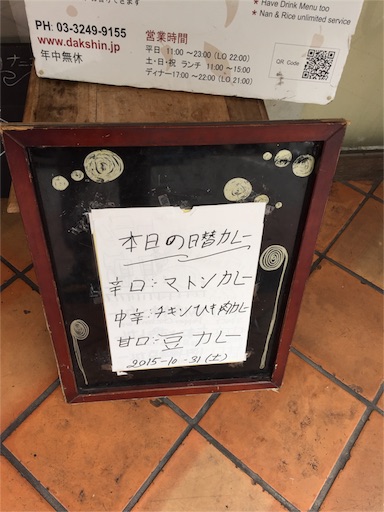 ★ Have Drink Menu too
★ Nan & Rice unlimited service
PH: 03-3249-9155
www.dakshin.jp
年中無休
営業時間
平日 11:00～23:00 (LO 22:00)
土・日・祝 ランチ 11:00～15:00
ディナー 17:00～22:00 (LO 21:00)
QR Code
本日の日替カレー
辛口:マトンカレー
中辛:チキンひき肉カレー
甘口:豆カレー
2015-10-31(土)